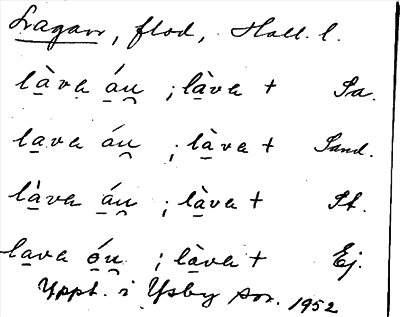 Lagan, flod, Hall. l.
là̱va̱ á̱u̯ ; là̱va + Sa.
la̱va áu̯ ; là̱va + Sand.
là̱va á̱u̯ ; là̱va + St.
la̱va ó̱u̯ ; là̱va + Ej.
Uppt. i Ysby sn. 1952